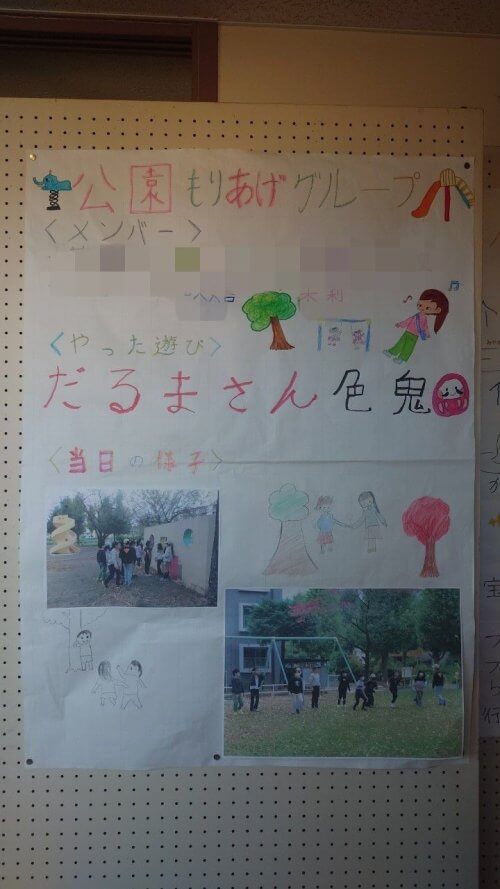 公園もりあげグループ
<メンバー>
<やった遊び>
だるまさん 色鬼
<当日の様子>